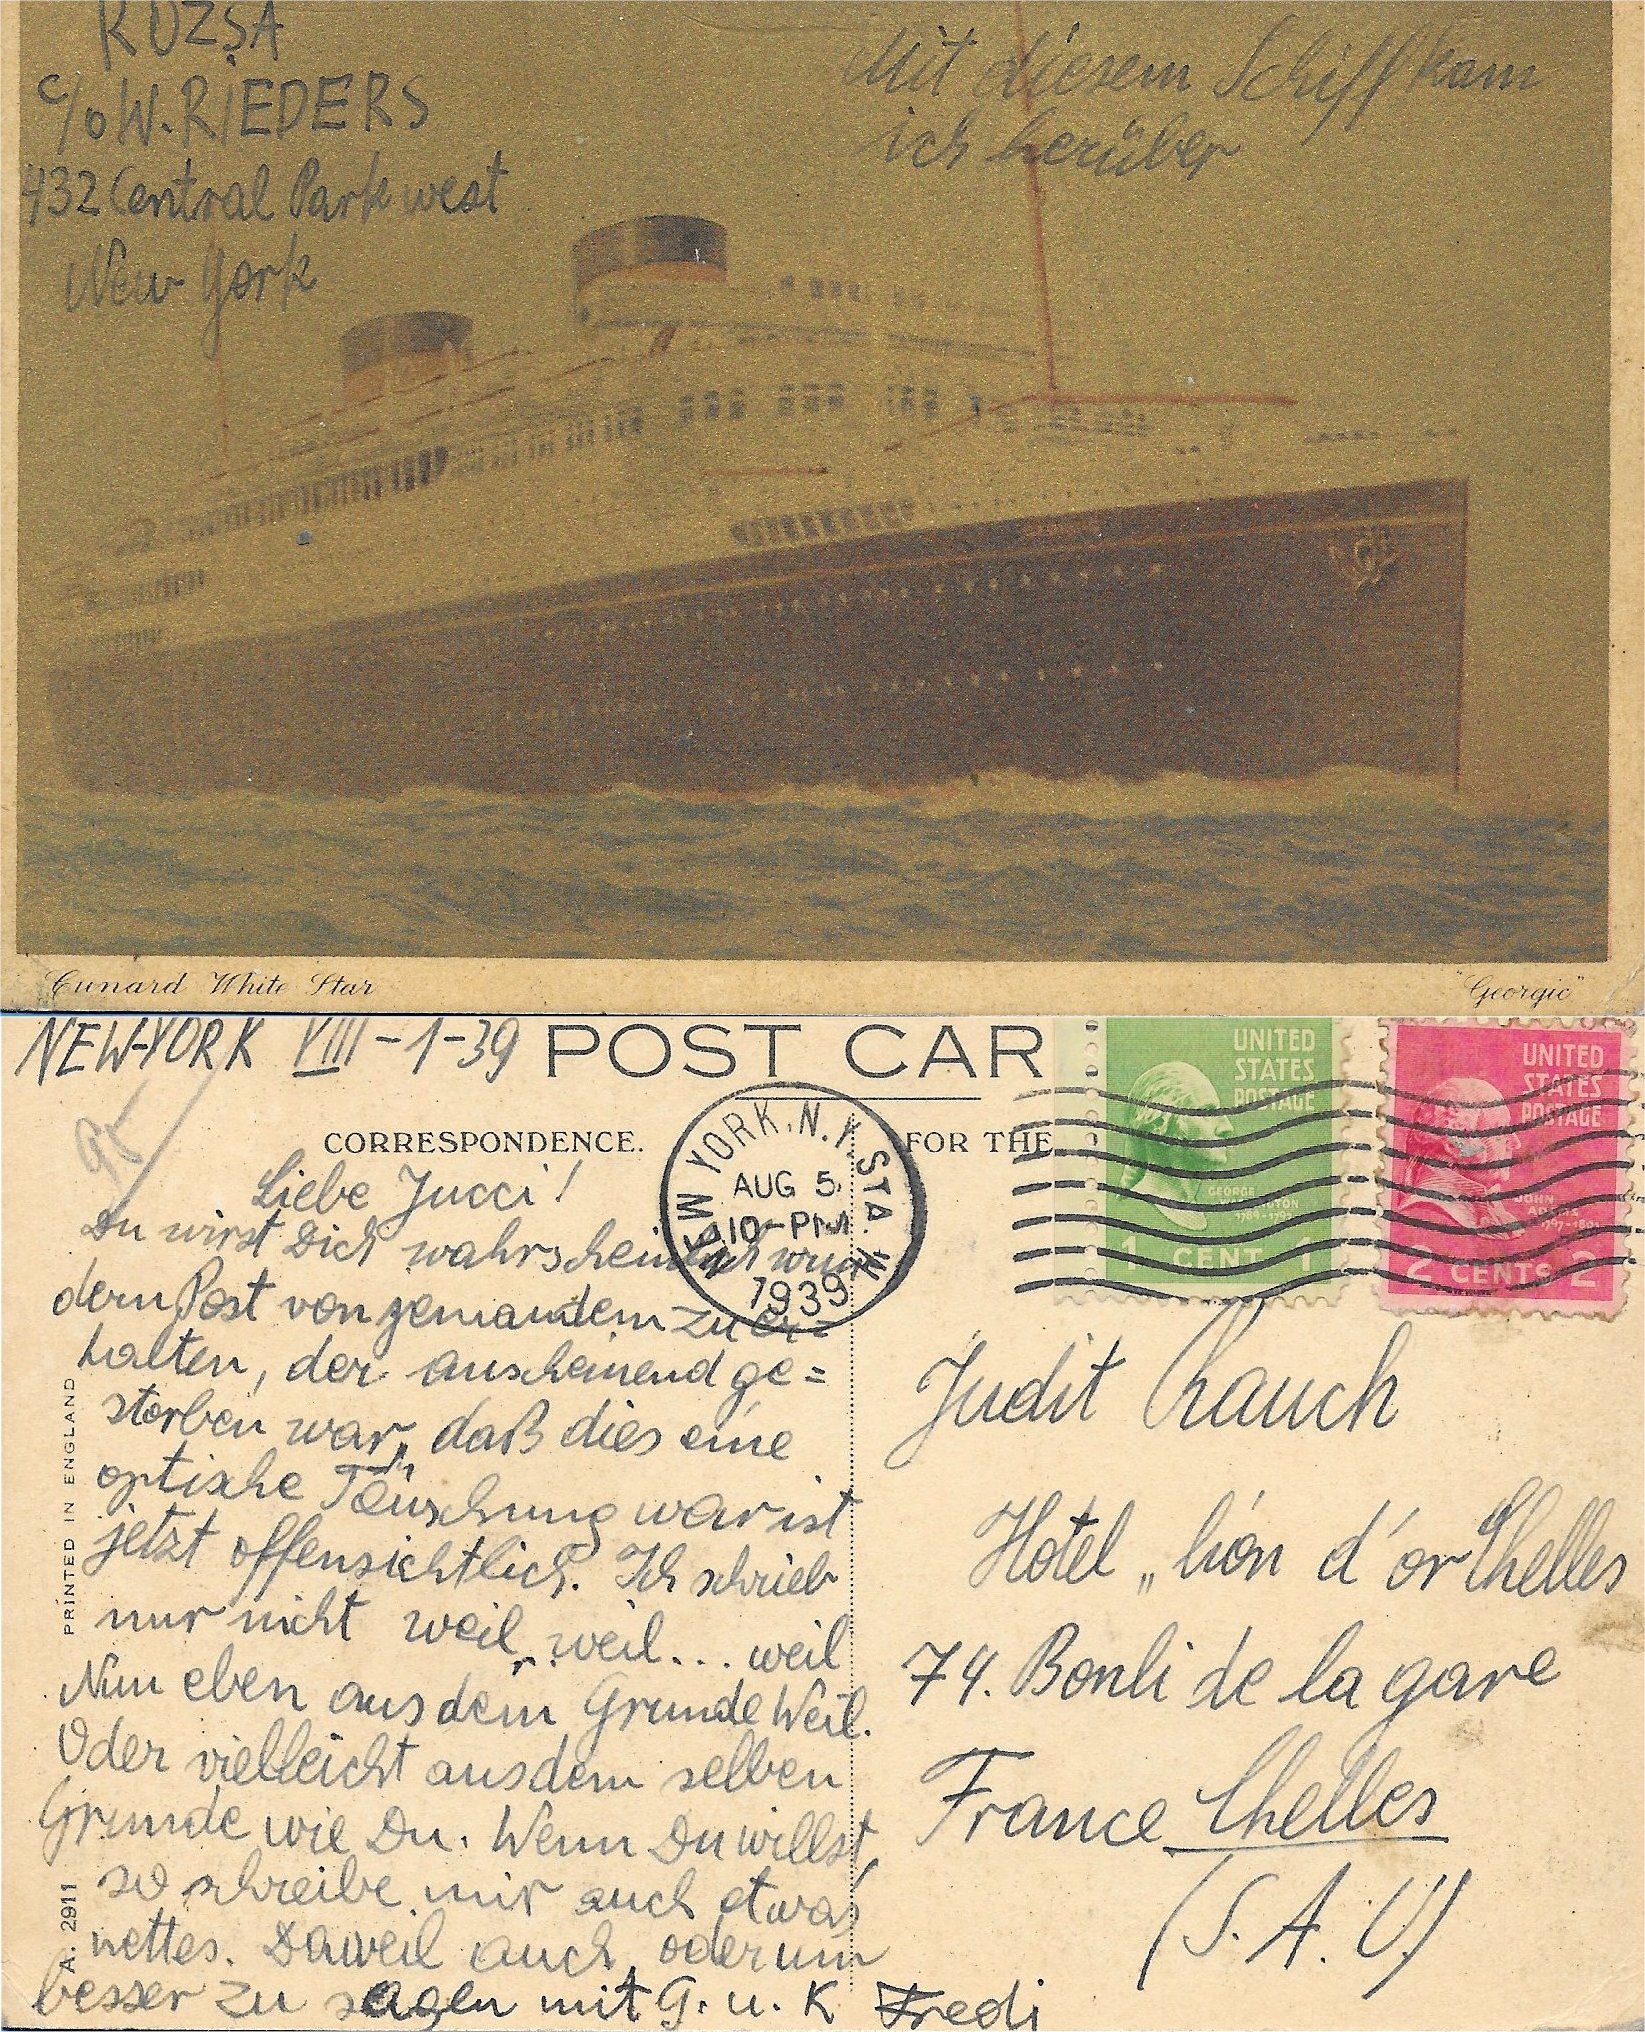 RÜZSA
c/o W. RIEDERS
432 Central Park west
New York
Mit diesem Schiff kam
ich herüber
Cunard White Star
"Georgic"
NEW-YORK VIII-1-39
POST CAR
95
CORRESPONDENCE.
FOR THE
NEW YORK, N.Y. STA.
AUG 5
10-PM
1939
UNITED
STATES
POSTAGE
GEORGE
WASHINGTON
1 CENT 1
UNITED
STATES
POSTAGE
JOHN
ADAMS
2 CENTS 2
Liebe Jucci!
Du wirst Dich wahrscheinlich wun
dern Post von jemandem zu er=
halten, der anscheinend ge=
storben war, daß dies eine
optische Täuschung war ist
jetzt offensichtlich. Ich schrieb
nur nicht weil, weil... weil
Nun eben aus dem Grunde Weil.
Oder vielleicht aus dem selben
Grunde wie Du. Wenn Du willst,
so schreibe mir auch etwas
nettes. Daweil auch, oder um
besser zu sagen mit G. u. K Fredi
PRINTED IN ENGLAND
A. 2911
Judit Rauch
Hotel „lión d'or Chelles
74. Bonli de la gare
France Chelles
(S. A. U)